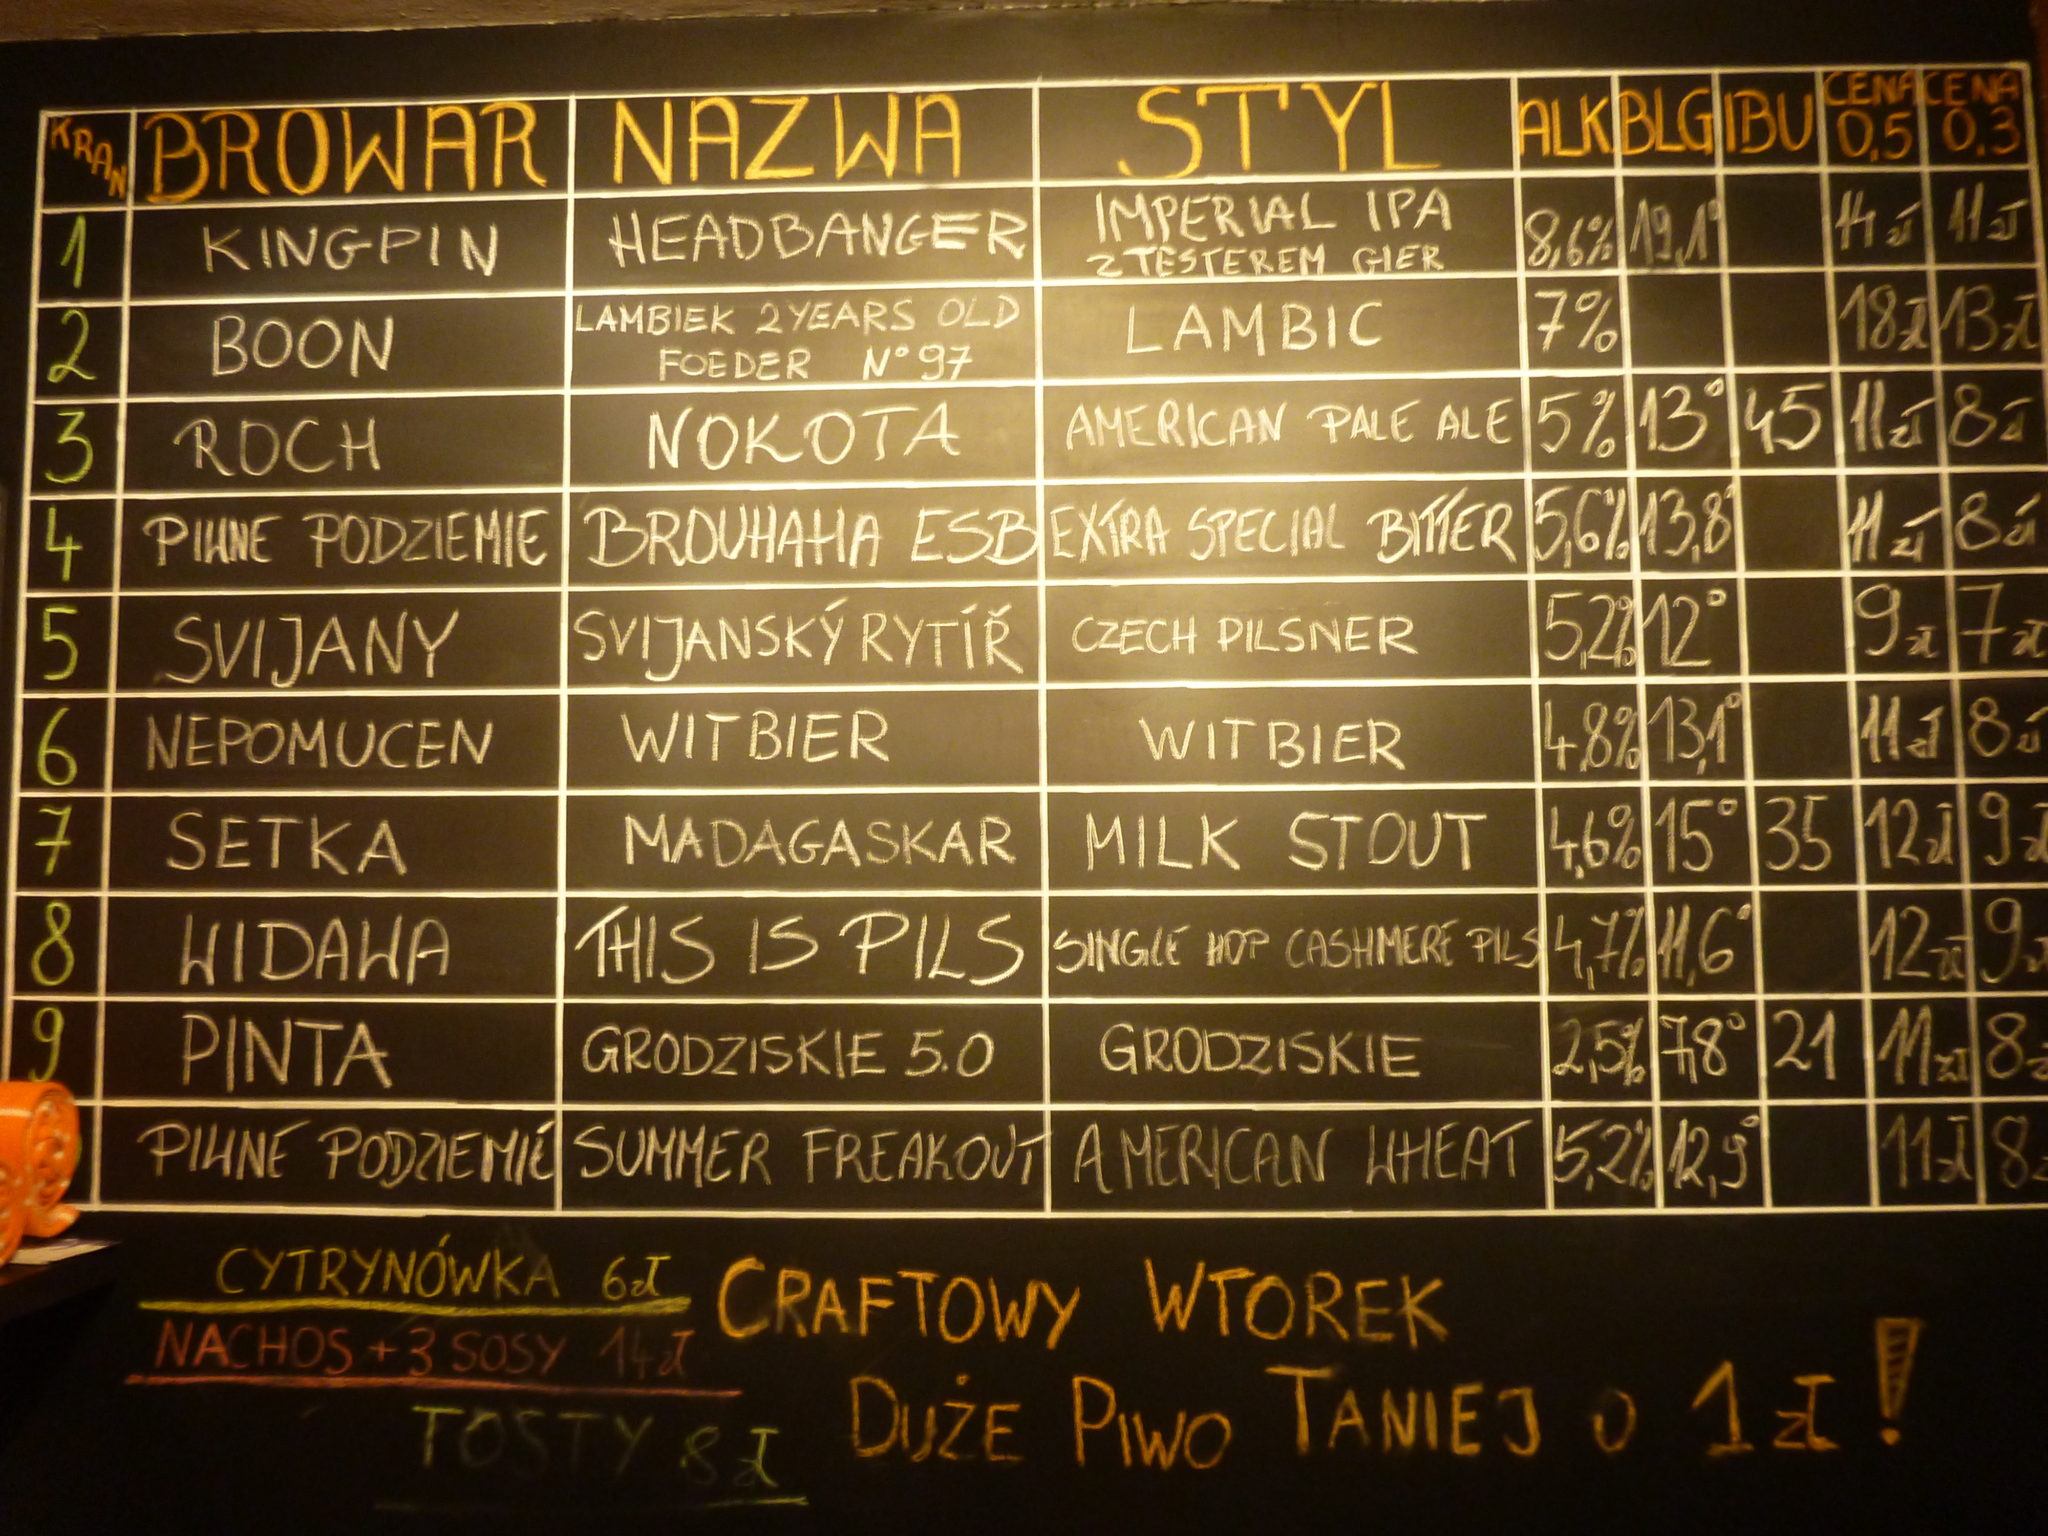 KRAN BROWAR NAZWA STYL ALK BLG IBU CENA 0,5 CENA 0,3
1 KINGPIN HEADBANGER IMPERIAL IPA 8,6% 19,1° 14 zł 11 zł
Z TESTEREM GIER
2 BOON LAMBIEK 2 YEARS OLD LAMBIC 7% 18 zł 13 zł
FOEDER N° 97
3 ROCH NOKOTA AMERICAN PALE ALE 5% 13° 45 11 zł 8 zł
4 PIWNE PODZIEMIE BROUHAHA ESB EXTRA SPECIAL BITTER 5,6% 13,8° 11 zł 8 zł
5 SVIJANY SVIJANSKÝ RYTÍŘ CZECH PILSNER 5,2% 12° 9 zł 7 zł
6 NEPOMUCEN WITBIER WITBIER 4,8% 13,1° 11 zł 8 zł
7 SETKA MADAGASKAR MILK STOUT 4,6% 15° 35 12 zł 9 zł
8 WIDAWA THIS IS PILS SINGLE HOP CASHMERE PILS 4,7% 11,6° 12 zł 9 zł
9 PINTA GRODZISKIE 5.0 GRODZISKIE 2,5% 7,8° 21 11 zł 8 zł
PIWNE PODZIEMIE SUMMER FREAKOUT AMERICAN WHEAT 5,2% 12,9° 11 zł 8 z
CYTRYNÓWKA 6 zł
NACHOS + 3 SOSY 14 zł
TOSTY 8 zł
CRAFTOWY WTOREK
DUŻE PIWO TANIEJ O 1 zł !